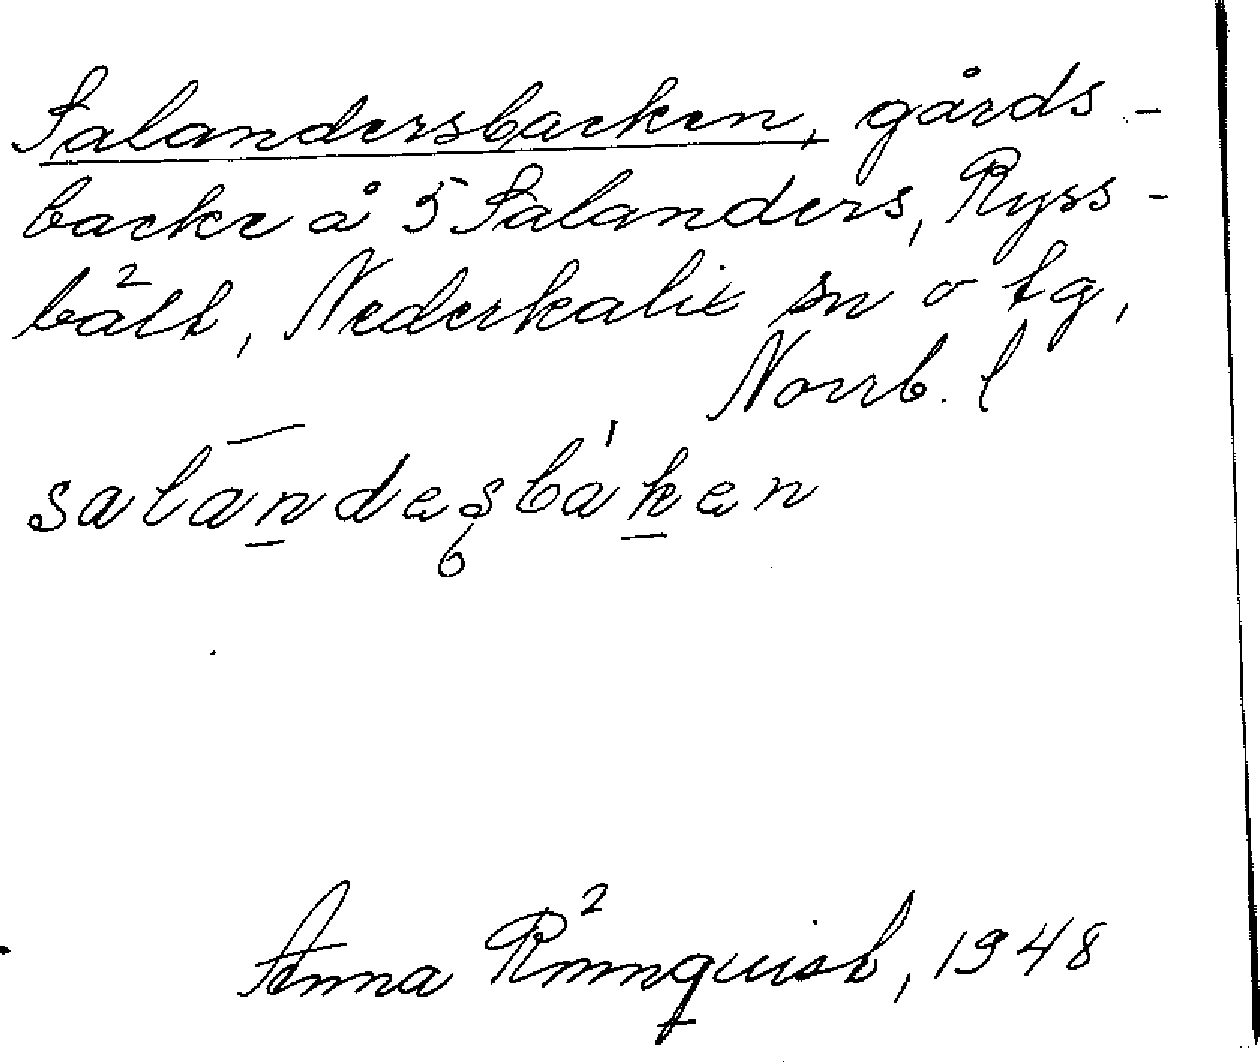 Salandersbacken, gårds-
backe å 5 Salanders, Ryss-
bält, Nederkalix sn o tg,
Norrb. l
salandesbaken
Anna Rönnquist, 1948